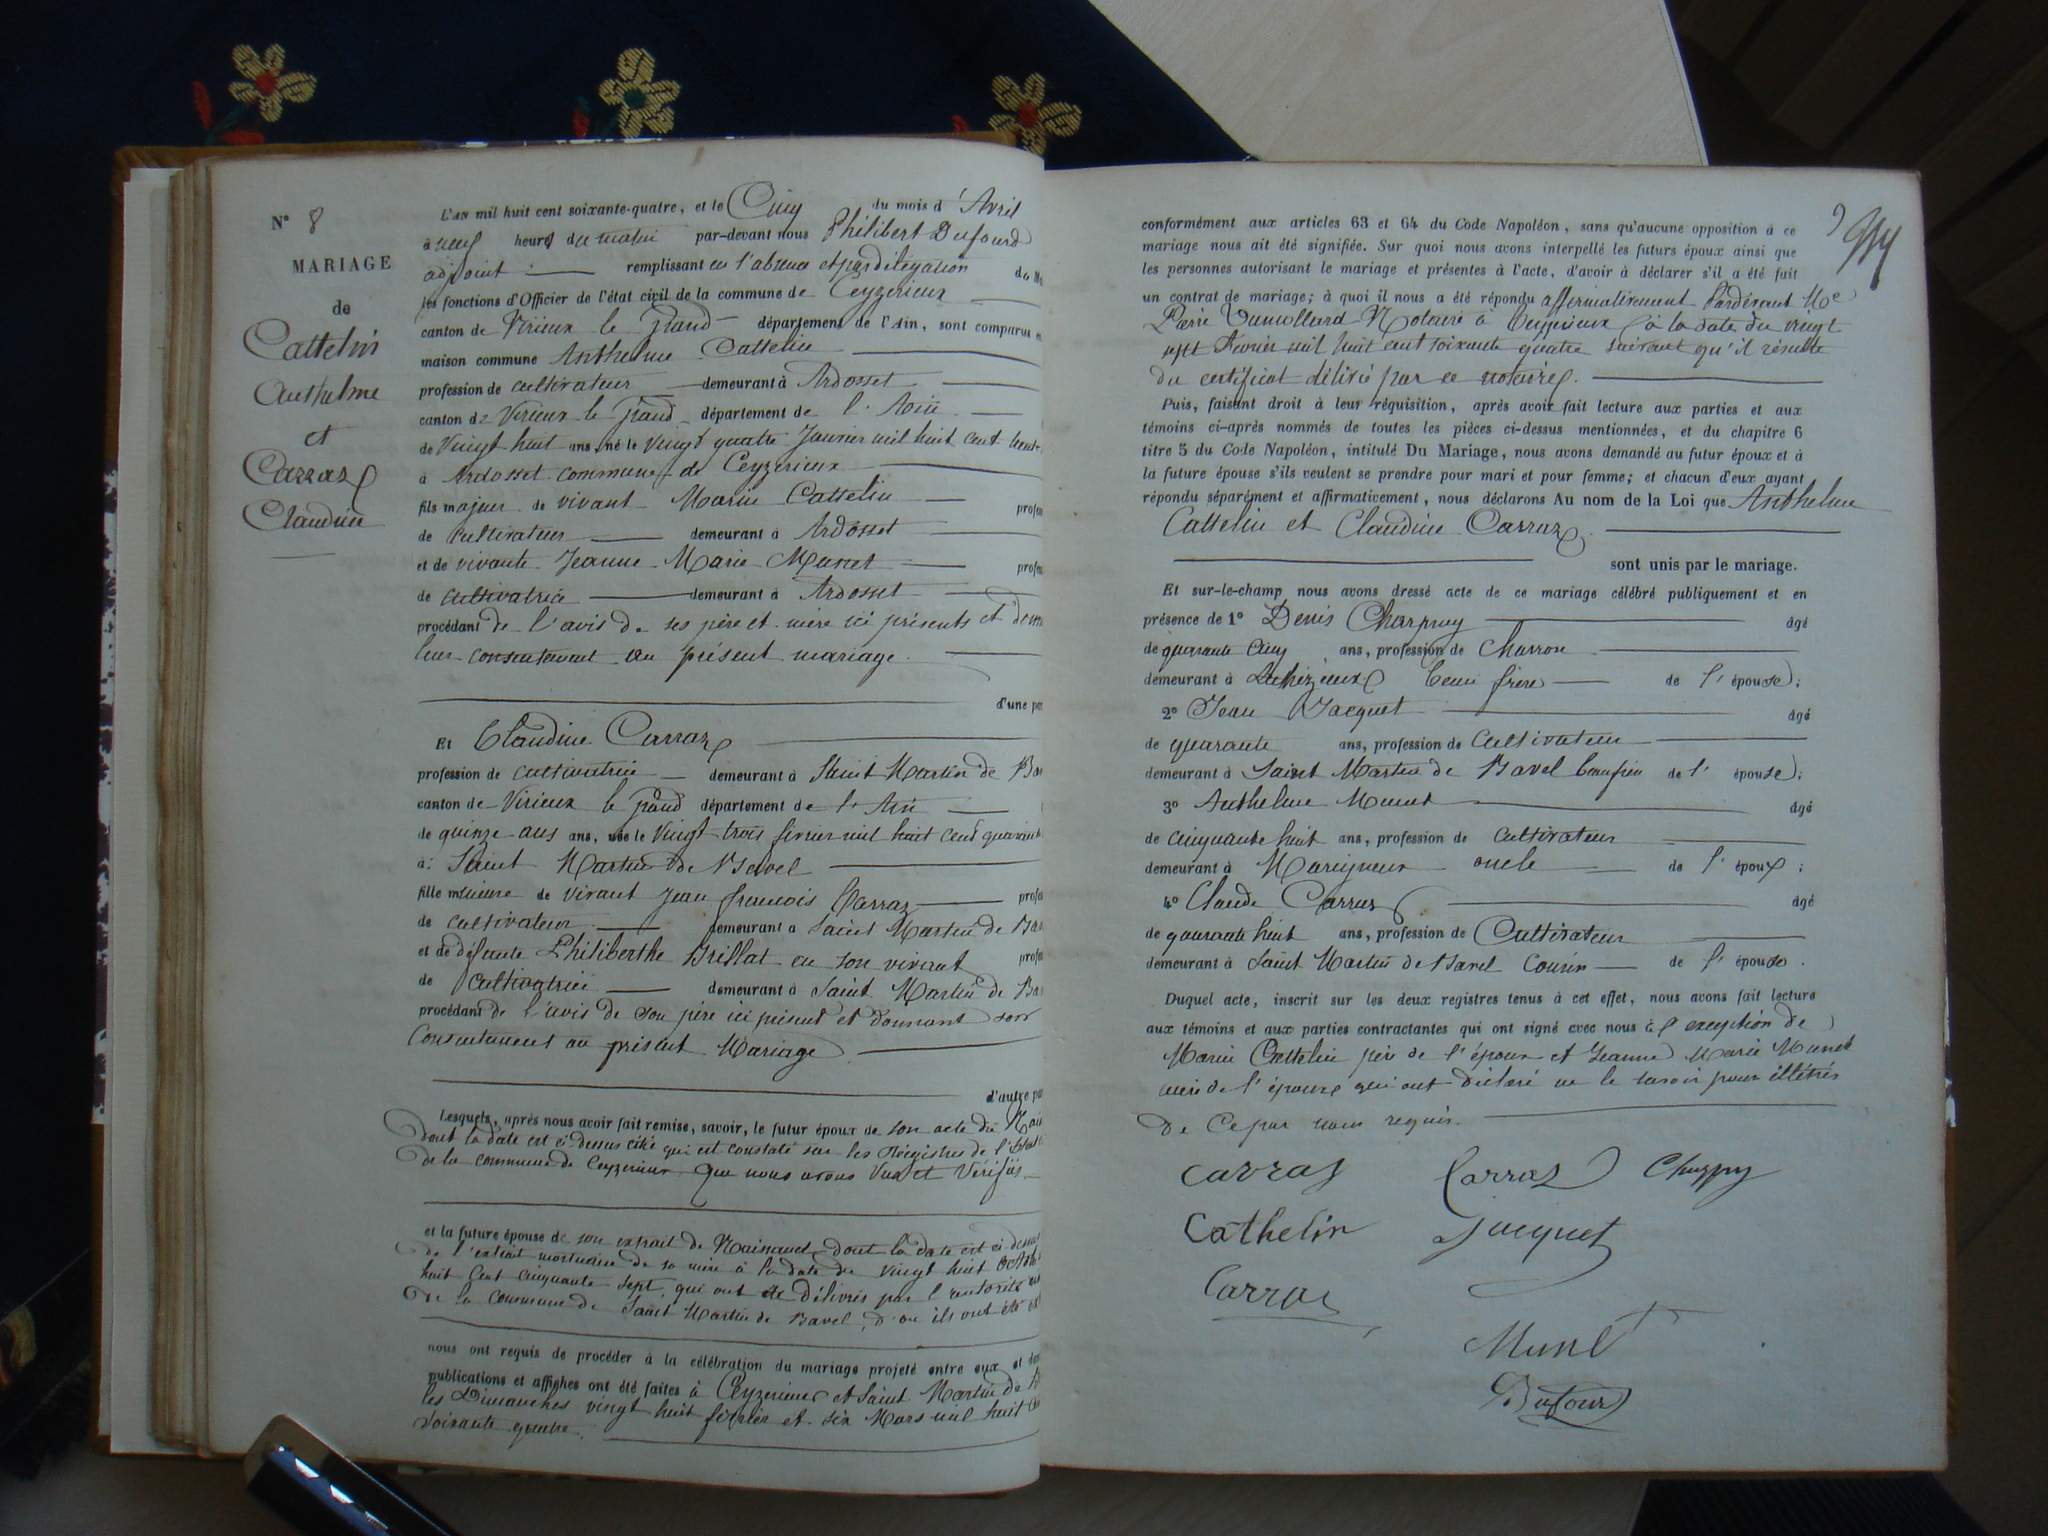 N° 8
MARIAGE
de
Cattelin
Anthelme
et
Carraz
Claudine
L'AN mil huit cent soixante-quatre, et le Cinq du mois d'Avril
à neuf heures du matin par-devant nous Philibert Dufourd
adjoint remplissant en l'absence et par délégation du M
les fonctions d'Officier de l'état civil de la commune de Ceyzerieux
canton de Virieux le Grand département de l'Ain, sont comparus en
maison commune Anthelme Cattelin
profession de cultivateur demeurant à Ardosset
canton de Virieux le Grand département de l'Ain
de Vingt huit ans, né le Vingt quatre Janvier mil huit cent trente
à Ardosset commune de Ceyzerieux
fils majeur de vivant Marin Cattelin profes
de cultivateur demeurant à Ardosset
et de vivante Jeanne Marie Munet profes
de cultivatrice demeurant à Ardosset
procédant de l'avis de ses père et mère ici présents et donn
leur consentement au présent mariage.
d'une par
Et Claudine Carraz
profession de cultivatrice demeurant à Saint Martin de Ba
canton de Virieux le Grand département de l'Ain
de quinze ans ans, née le Vingt trois février mil huit cent quarante
à Saint Martin de Bavel
fille mineure de vivant Jean françois Carraz profes
de cultivateur demeurant à Saint Martin de Ba
et de défunte Philiberthe Brillat en son vivant profes
de cultivatrice demeurant à Saint Martin de Ba
procédant de l'avis de son père ici présent et donnant son
Consentement au présent Mariage.
d'autre par
Lesquels, après nous avoir fait remise, savoir, le futur époux de son acte de Nai
dont la date est ci-dessus citée qui est constaté sur les Régistres de l'Etat
de la commune de Ceyzerieux que nous avons Vus et Vérifiés
et la future épouse de son extrait de Naissance dont la date est ci dessus
de l'extrait mortuaire de sa mère à la date du vingt huit Octob
huit Cent cinquante sept, qui ont été délivrés par l'autorité
de la commune de Saint Martin de Bavel, d'où ils ont été
nous ont requis de procéder à la célébration du mariage projeté entre eux et dont
publications et affiches ont été faites à Ceyzerieux et Saint Martin de B
les Dimanches vingt huit février et six Mars mil huit
soixante quatre.
conformément aux articles 63 et 64 du Code Napoléon, sans qu'aucune opposition à ce
mariage nous ait été signifiée. Sur quoi nous avons interpellé les futurs époux ainsi que
les personnes autorisant le mariage et présentes à l'acte, d'avoir à déclarer s'il a été fait
un contrat de mariage; à quoi il nous a été répondu affirmativement Pardevant Me
Pierre Notaire à Ceyzerieux à la date du vingt
sept Février mil huit cent soixante quatre suivant qu'il résulte
du certificat délivré par ce notaire.
Puis, faisant droit à leur réquisition, après avoir fait lecture aux parties et aux
témoins ci-après nommés de toutes les pièces ci-dessus mentionnées, et du chapitre 6
titre 5 du Code Napoléon, intitulé Du Mariage, nous avons demandé au futur époux et à
la future épouse s'ils veulent se prendre pour mari et pour femme; et chacun d'eux ayant
répondu séparément et affirmativement, nous déclarons Au nom de la Loi que Anthelme
Cattelin et Claudine Carraz
sont unis par le mariage.
Et sur-le-champ nous avons dressé acte de ce mariage célébré publiquement et en
présence de 1° Denis Charpuy âgé
de quarante Cinq ans, profession de Charron
demeurant à frère de l'épouse;
2° Jean Jacquet âgé
de quarante ans, profession de Cultivateur
demeurant à Saint Martin de Bavel de l'épouse;
3° Anthelme Munet âgé
de cinquante huit ans, profession de cultivateur
demeurant à Marignieux oncle de l'époux;
4° Claude Carraz âgé
de quarante huit ans, profession de Cultivateur
demeurant à Saint Martin de Bavel cousin de l'épouse.
Duquel acte, inscrit sur les deux registres tenus à cet effet, nous avons fait lecture
aux témoins et aux parties contractantes qui ont signé avec nous à l'exception de
Marin Cattelin père de l'époux et Jeanne Marie Munet
mère de l'époux qui ont déclaré ne le savoir pour illétrés
de Ce par nous requis.
Carras Carraz Charpuy
Cathelin Jacquet
Carraz
Munet
Dufour